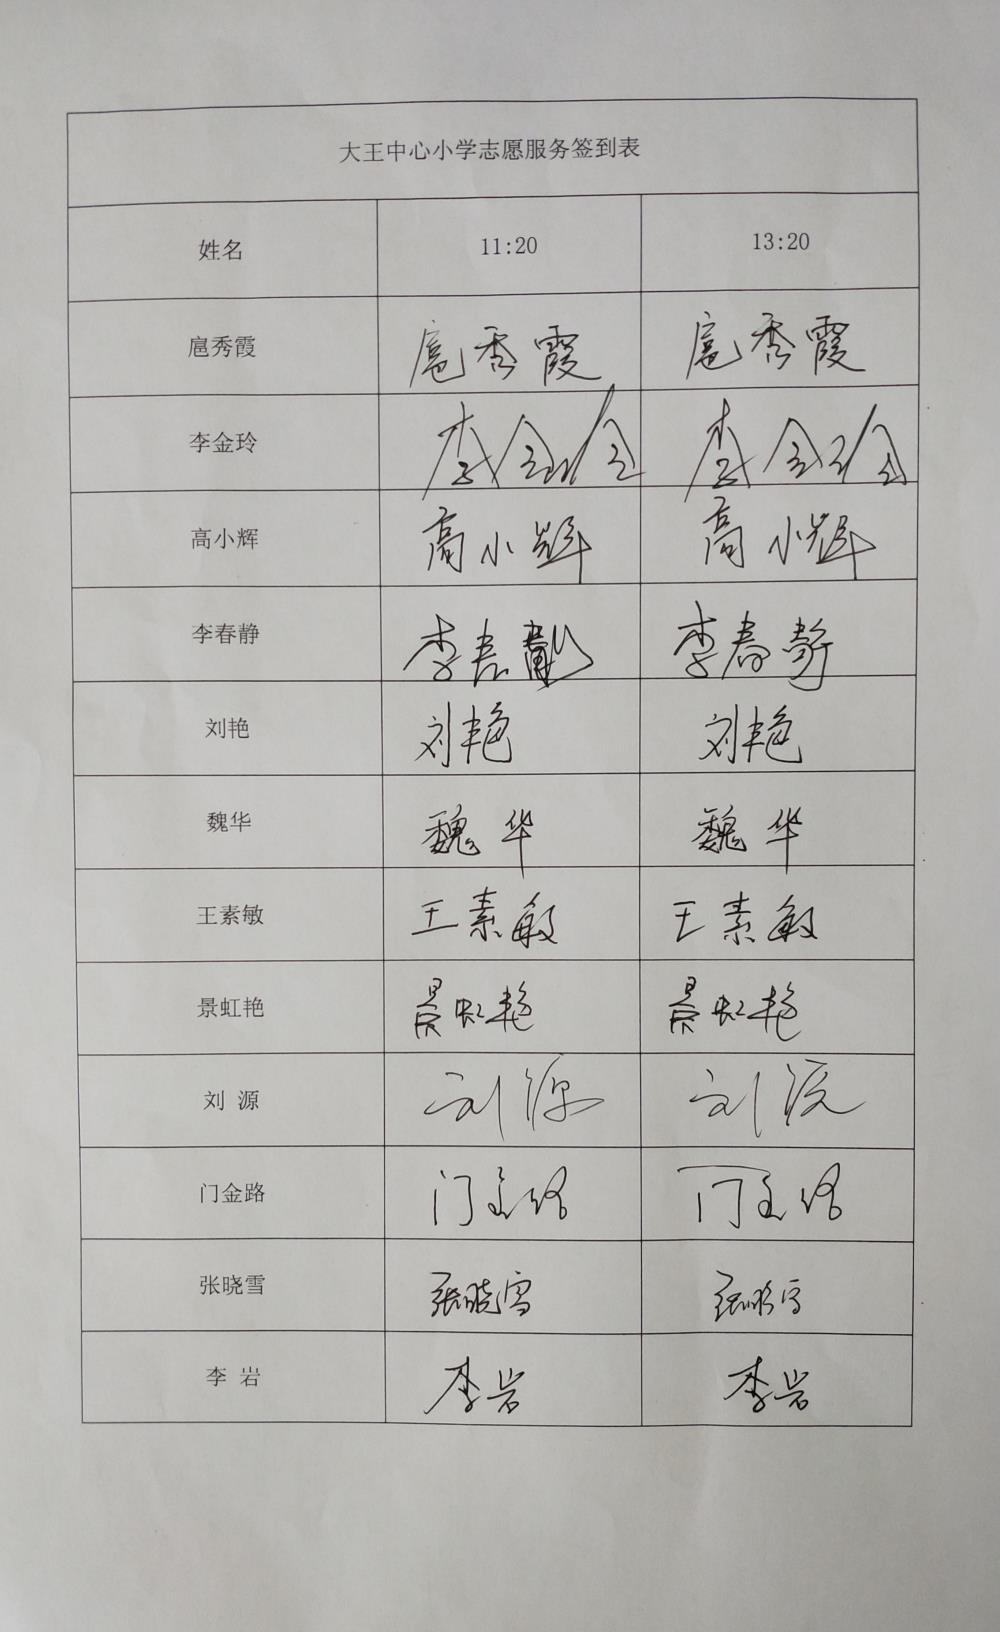 大王中心小学志愿服务签到表
姓名 11:20 13:20
扈秀霞 扈秀霞 扈秀霞
李金玲 李金玲 李金玲
高小辉 高小辉 高小辉
李春静 李春静 李春静
刘艳 刘艳 刘艳
魏华 魏华 魏华
王素敏 王素敏 王素敏
景虹艳 景虹艳 景虹艳
刘 源 刘源 刘源
门金路 门金路 门金路
张晓雪 张晓雪 张晓雪
李 岩 李岩 李岩